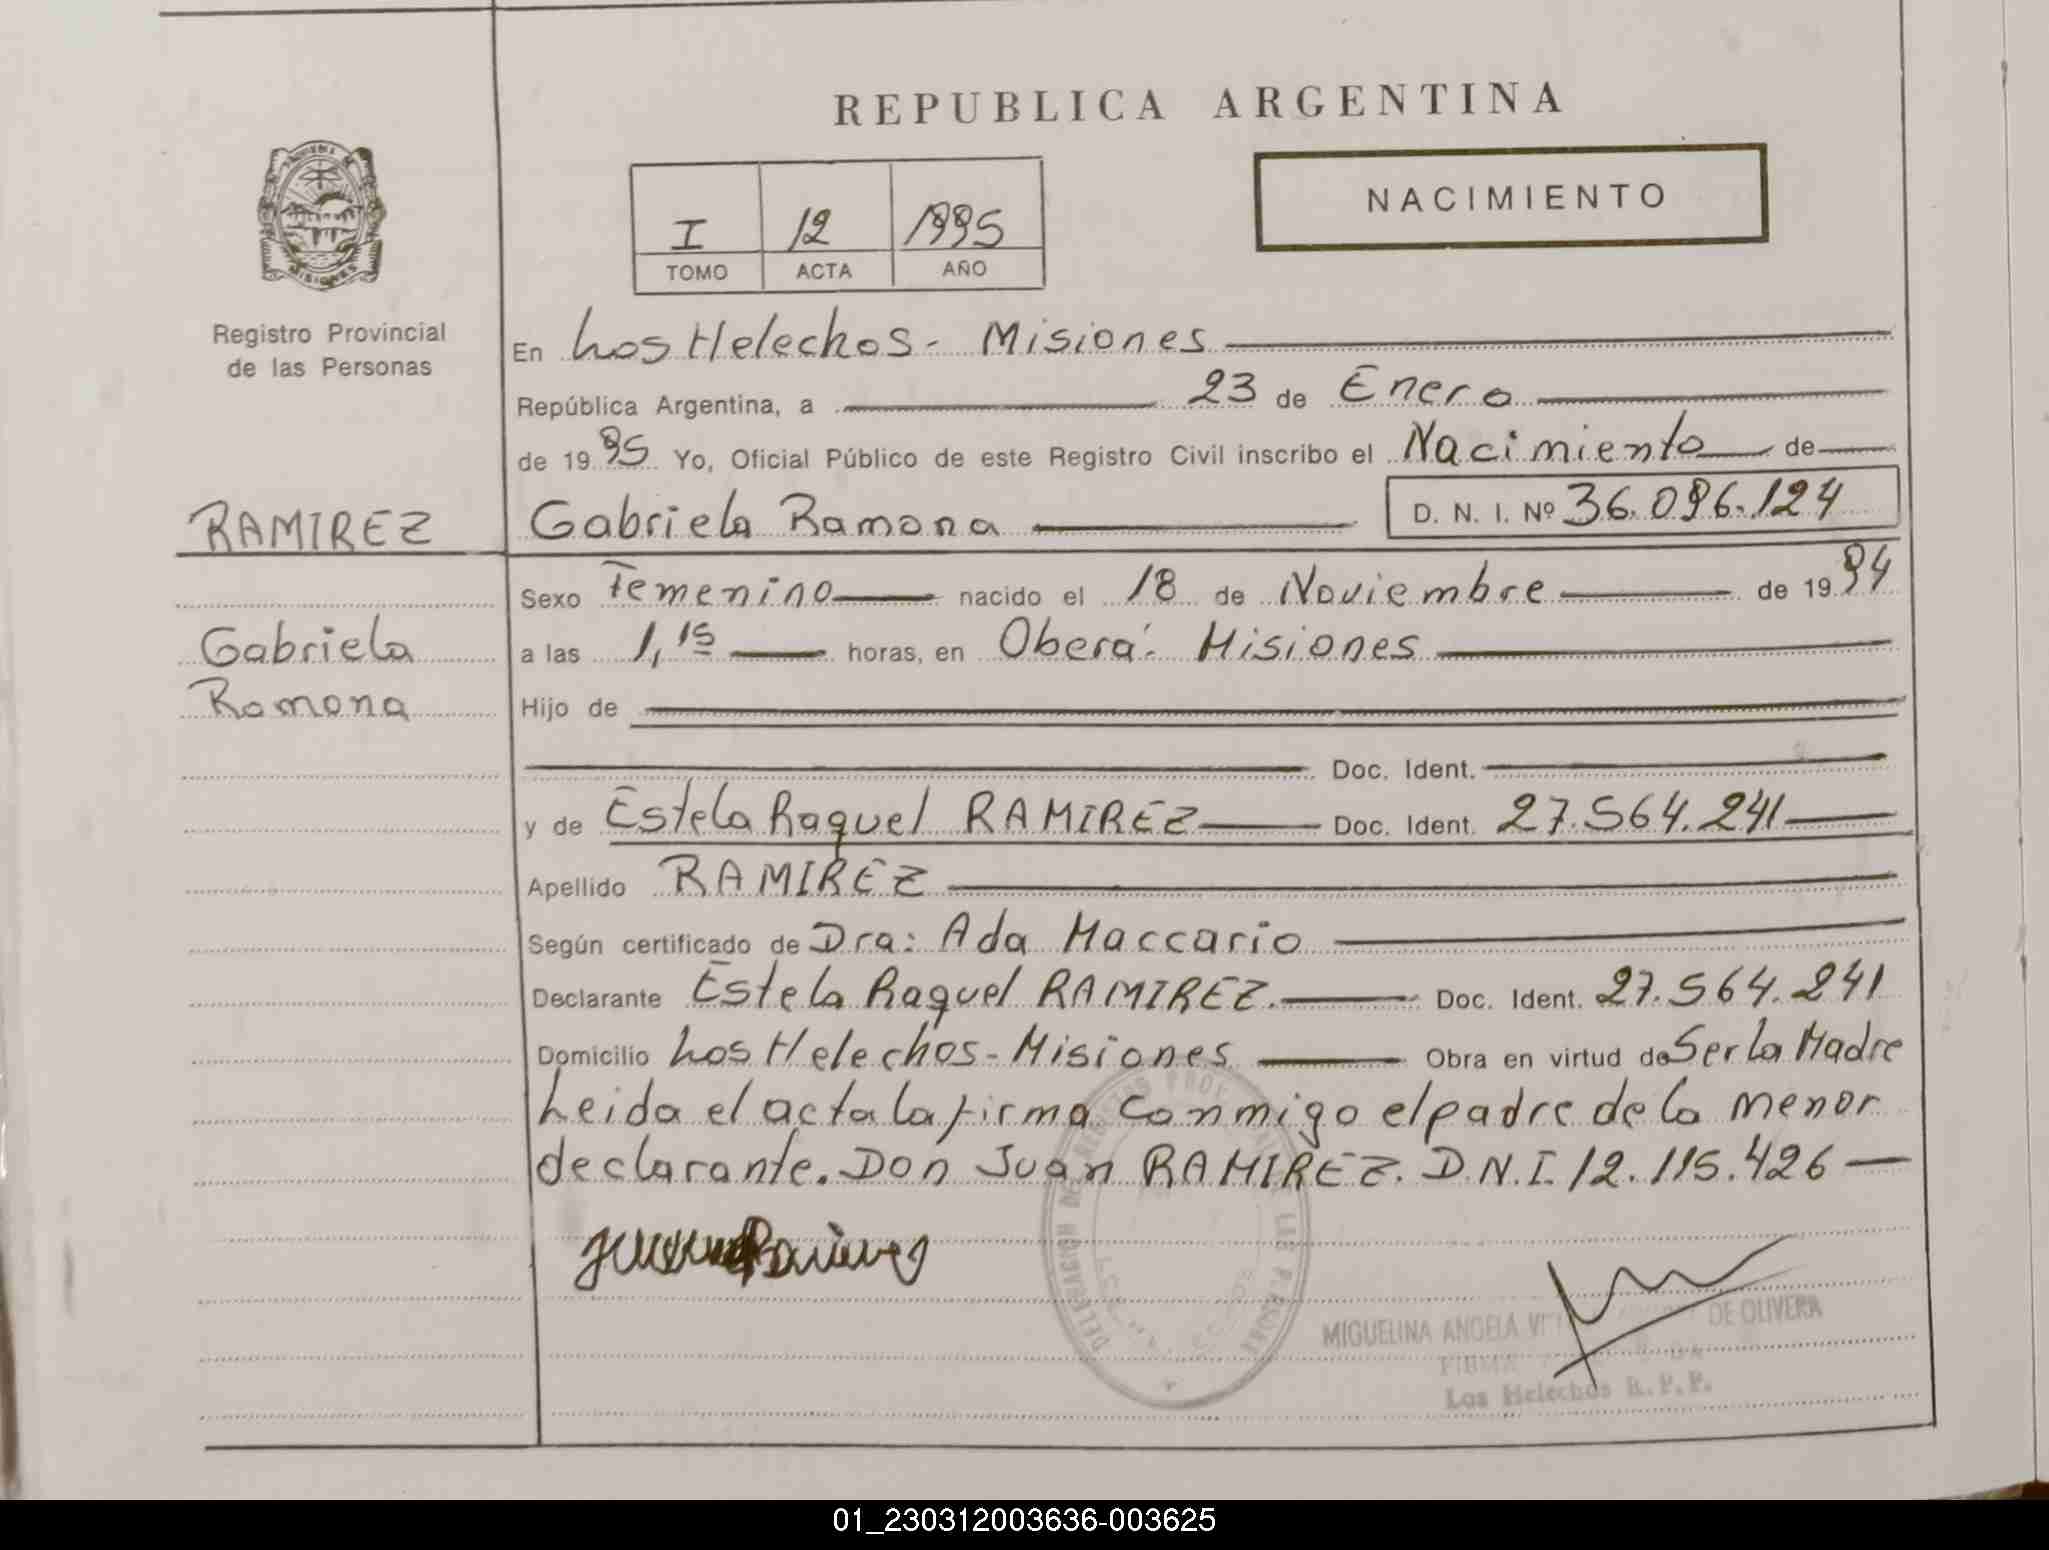 REPUBLICA ARGENTINA
NACIMIENTO
I 12 1995
TOMO ACTA AÑO
MISIONES
Registro Provincial
de las Personas
En Los Helechos - Misiones
República Argentina, a 23 de Enero
de 1995 Yo, Oficial Público de este Registro Civil inscribo el Nacimiento de
RAMIREZ Gabriela Ramona D. N. I. Nº 36.096.124
Sexo Femenino nacido el 18 de Noviembre de 1994
Gabriela a las 1,15 horas, en Oberá - Misiones
Ramona Hijo de
Doc. Ident.
y de Estela Raquel RAMIREZ Doc. Ident. 27.564.241
Apellido RAMIREZ
Según certificado de Dra: Ada Maccario
Declarante Estela Raquel RAMIREZ. Doc. Ident. 27.564.241
Domicilio Los Helechos - Misiones Obra en virtud de Ser la Madre
Leida el acta la firma conmigo el padre de la menor
declarante. Don Juan RAMIREZ. D.N.I. 12.115.426
MIGUELINA ANGELA DE OLIVERA
FIRMA
Los Helechos R.P.P.
01_230312003636-003625